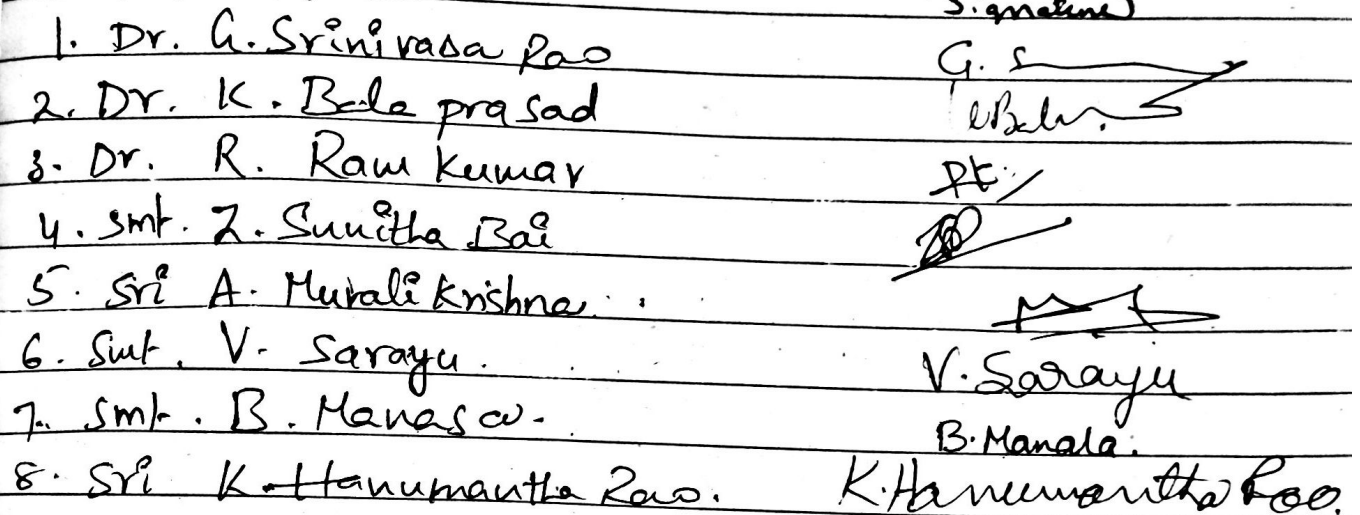 Signature
1. Dr. G. Srinivasa Rao G. S
2. Dr. K. Bala prasad
3. Dr. R. Ram Kumar
4. Smt. Z. Sunitha Bai
5. Sri A. Murali Krishna.
6. Smt. V. Sarayu. V. Sarayu
7. Smt. B. Manasa. B. Manasa.
8. Sri K. Hanumantha Rao. K. Hanumantha Rao.